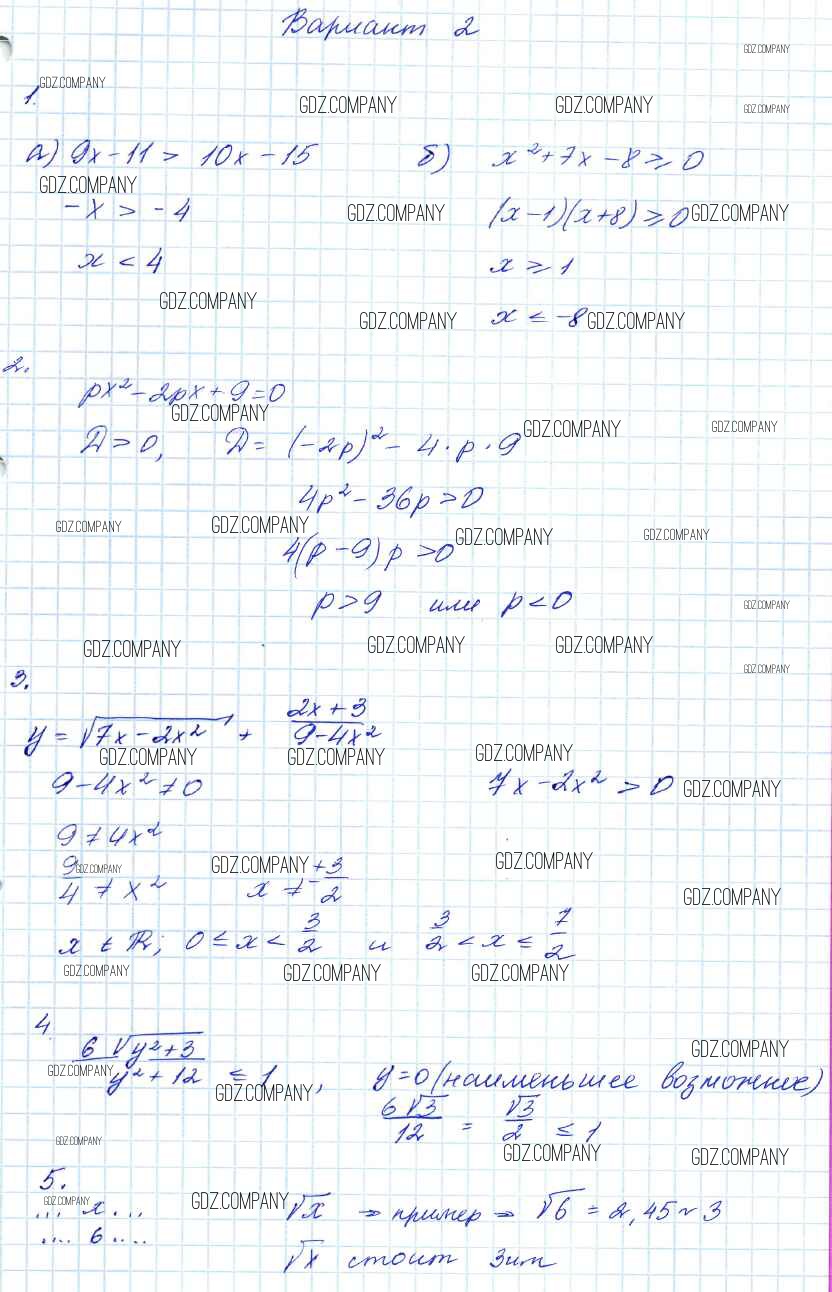 Вариант 2
GDZ.COMPANY
GDZ.COMPANY
1.
GDZ.COMPANY GDZ.COMPANY GDZ.COMPANY
а) 9x - 11 > 10x - 15 б) x² + 7x - 8 ≥ 0
GDZ.COMPANY
-x > -4 GDZ.COMPANY (x - 1)(x + 8) ≥ 0 GDZ.COMPANY
x < 4 x ≥ 1
GDZ.COMPANY
GDZ.COMPANY x ≤ -8 GDZ.COMPANY
2.
px² - 2px + 9 = 0
GDZ.COMPANY
GDZ.COMPANY GDZ.COMPANY
D > 0, D = (-2p)² - 4 · p · 9
4p² - 36p > 0
GDZ.COMPANY GDZ.COMPANY GDZ.COMPANY GDZ.COMPANY
4(p - 9) p > 0
p > 9 или p < 0 GDZ.COMPANY
GDZ.COMPANY GDZ.COMPANY GDZ.COMPANY
GDZ.COMPANY
3.
y = √(7x - 2x²) + (2x + 3)/(9 - 4x²)
GDZ.COMPANY GDZ.COMPANY GDZ.COMPANY
9 - 4x² ≠ 0 7x - 2x² > 0 GDZ.COMPANY
9 ≠ 4x²
GDZ.COMPANY GDZ.COMPANY GDZ.COMPANY
9/4 ≠ x² x ≠ ±3/2
GDZ.COMPANY
x ∈ R; 0 ≤ x < 3/2 и 3/2 < x ≤ 7/2
GDZ.COMPANY GDZ.COMPANY GDZ.COMPANY
4
GDZ.COMPANY
6√(y² + 3)/(y² + 12) ≤ 1, y = 0 (наименьшее возможное)
GDZ.COMPANY GDZ.COMPANY
6√3/12 = √3/2 ≤ 1
GDZ.COMPANY GDZ.COMPANY GDZ.COMPANY
5.
GDZ.COMPANY GDZ.COMPANY
... x ... √x → пример → √6 = 2,45 ~ 3
.... 6 ....
√x стоит 3им